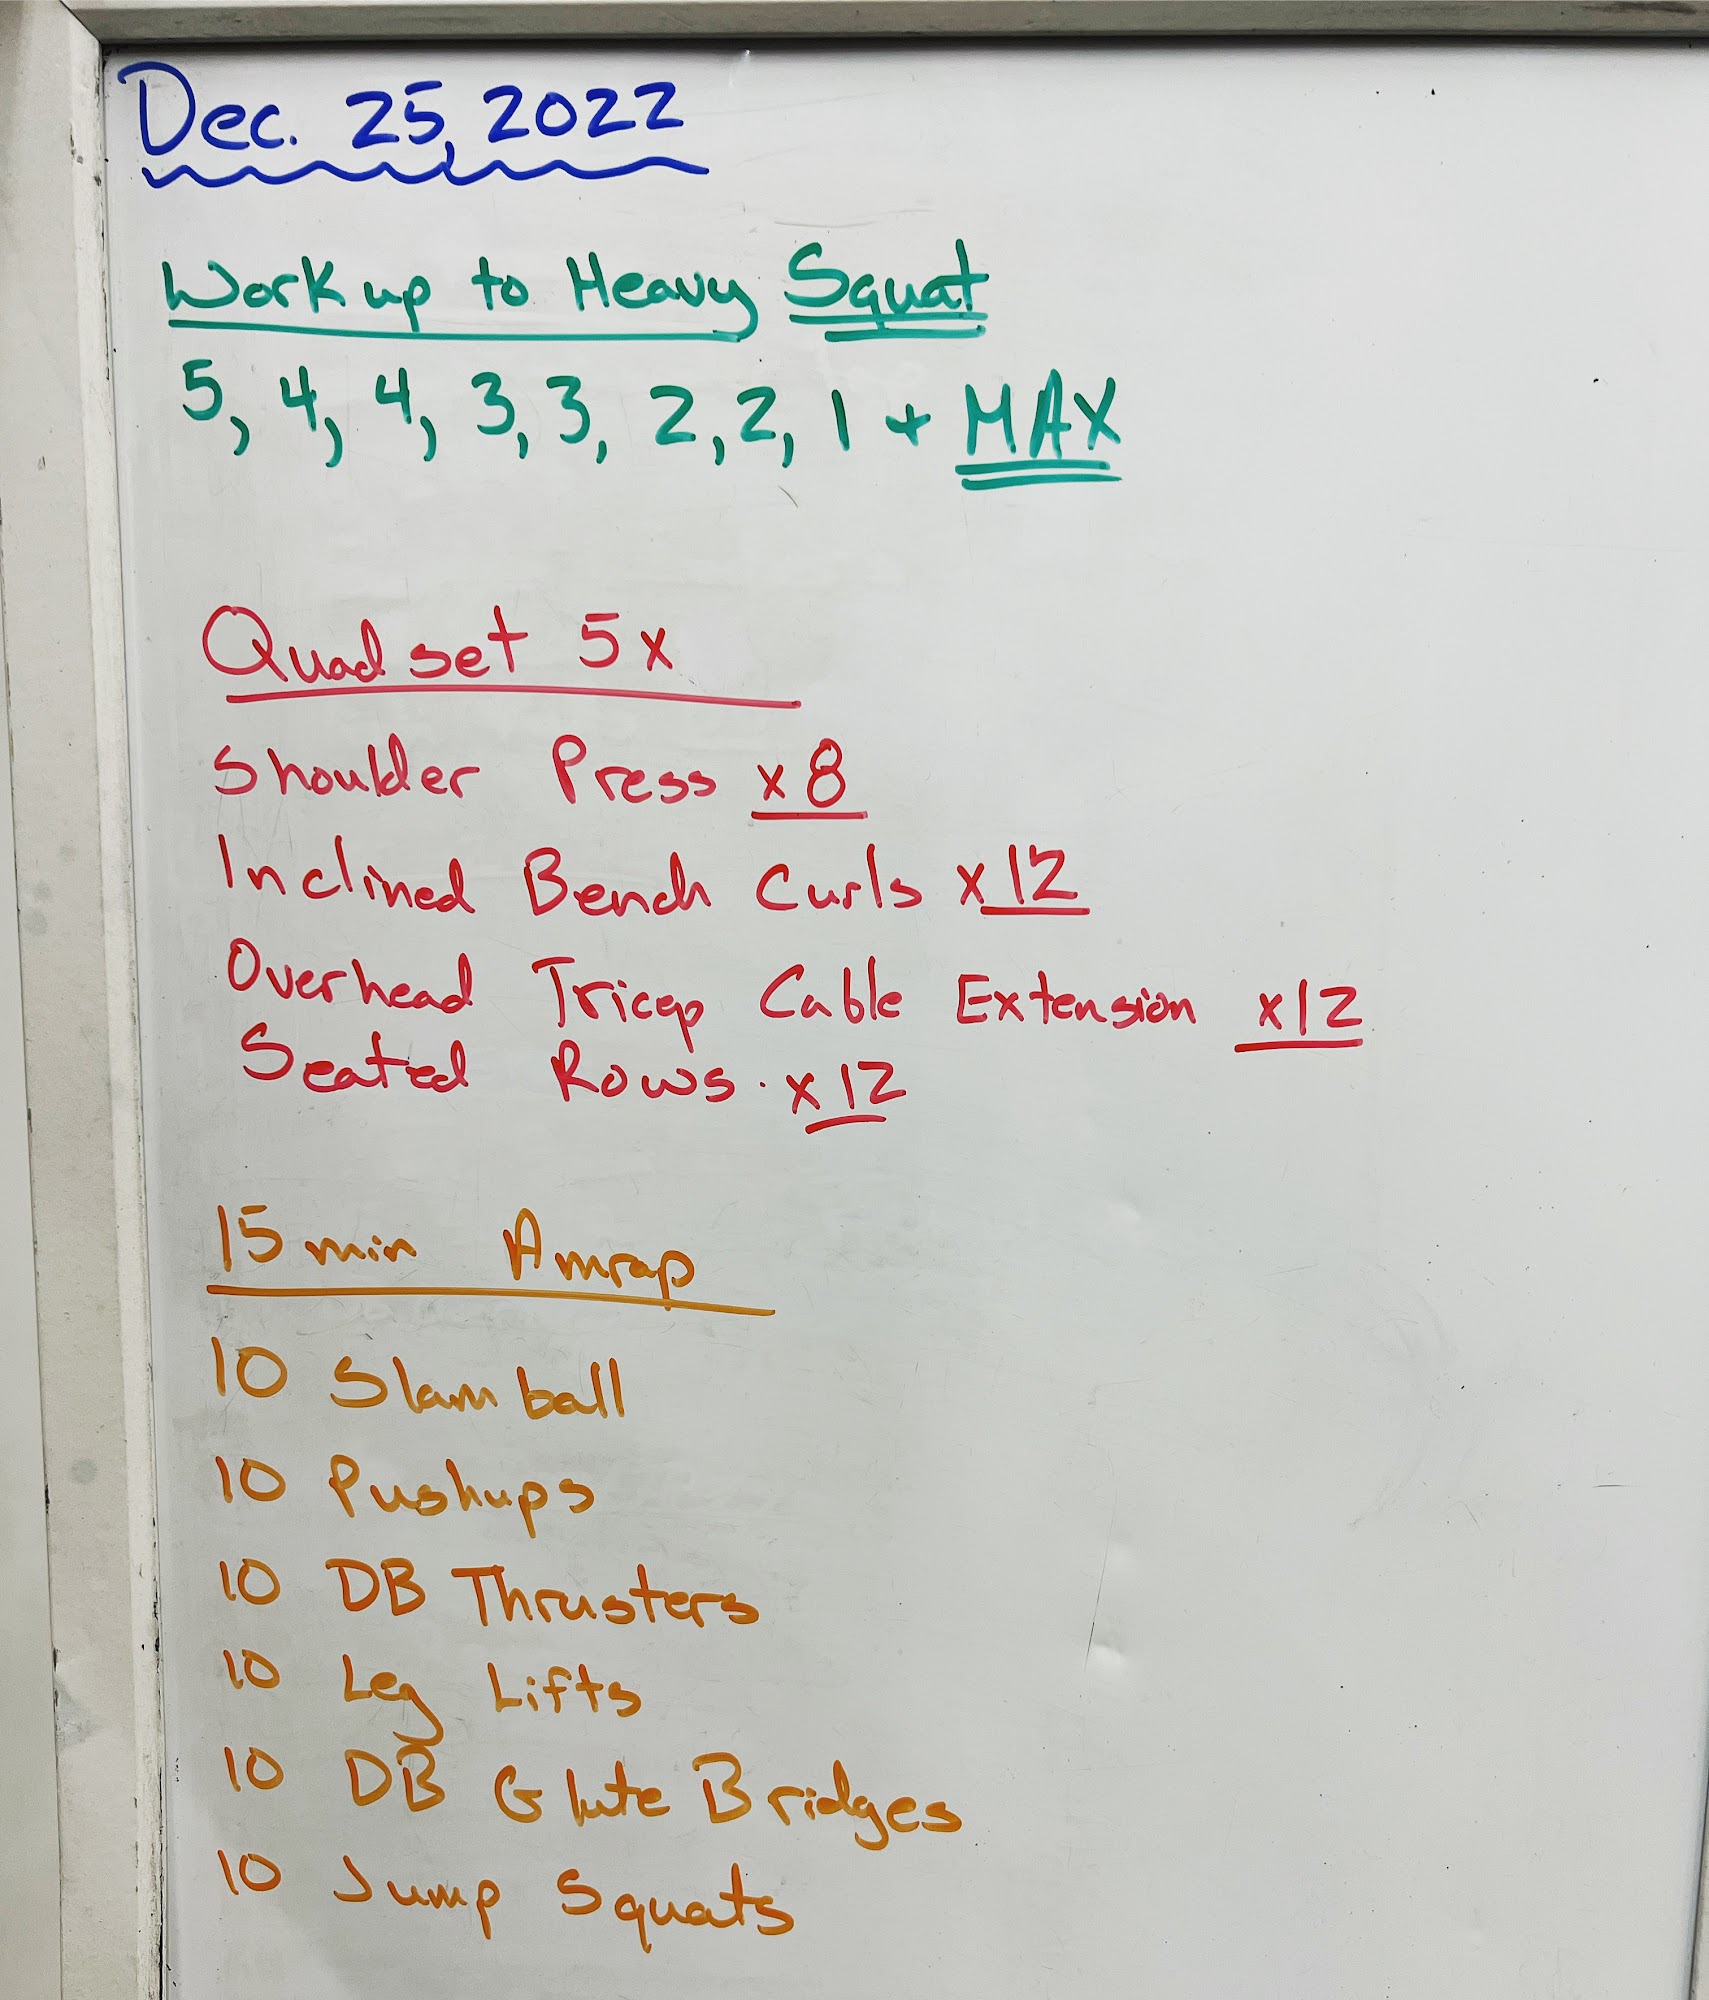 Dec. 25, 2022
Work up to Heavy Squat
5, 4, 4, 3, 3, 2, 2, 1 + MAX
Quad set 5x
Shoulder Press x8
Inclined Bench Curls x12
Overhead Tricep Cable Extension x12
Seated Rows x12
15 min Amrap
10 Slam ball
10 Pushups
10 DB Thrusters
10 Leg Lifts
10 DB Glute Bridges
10 Jump Squats